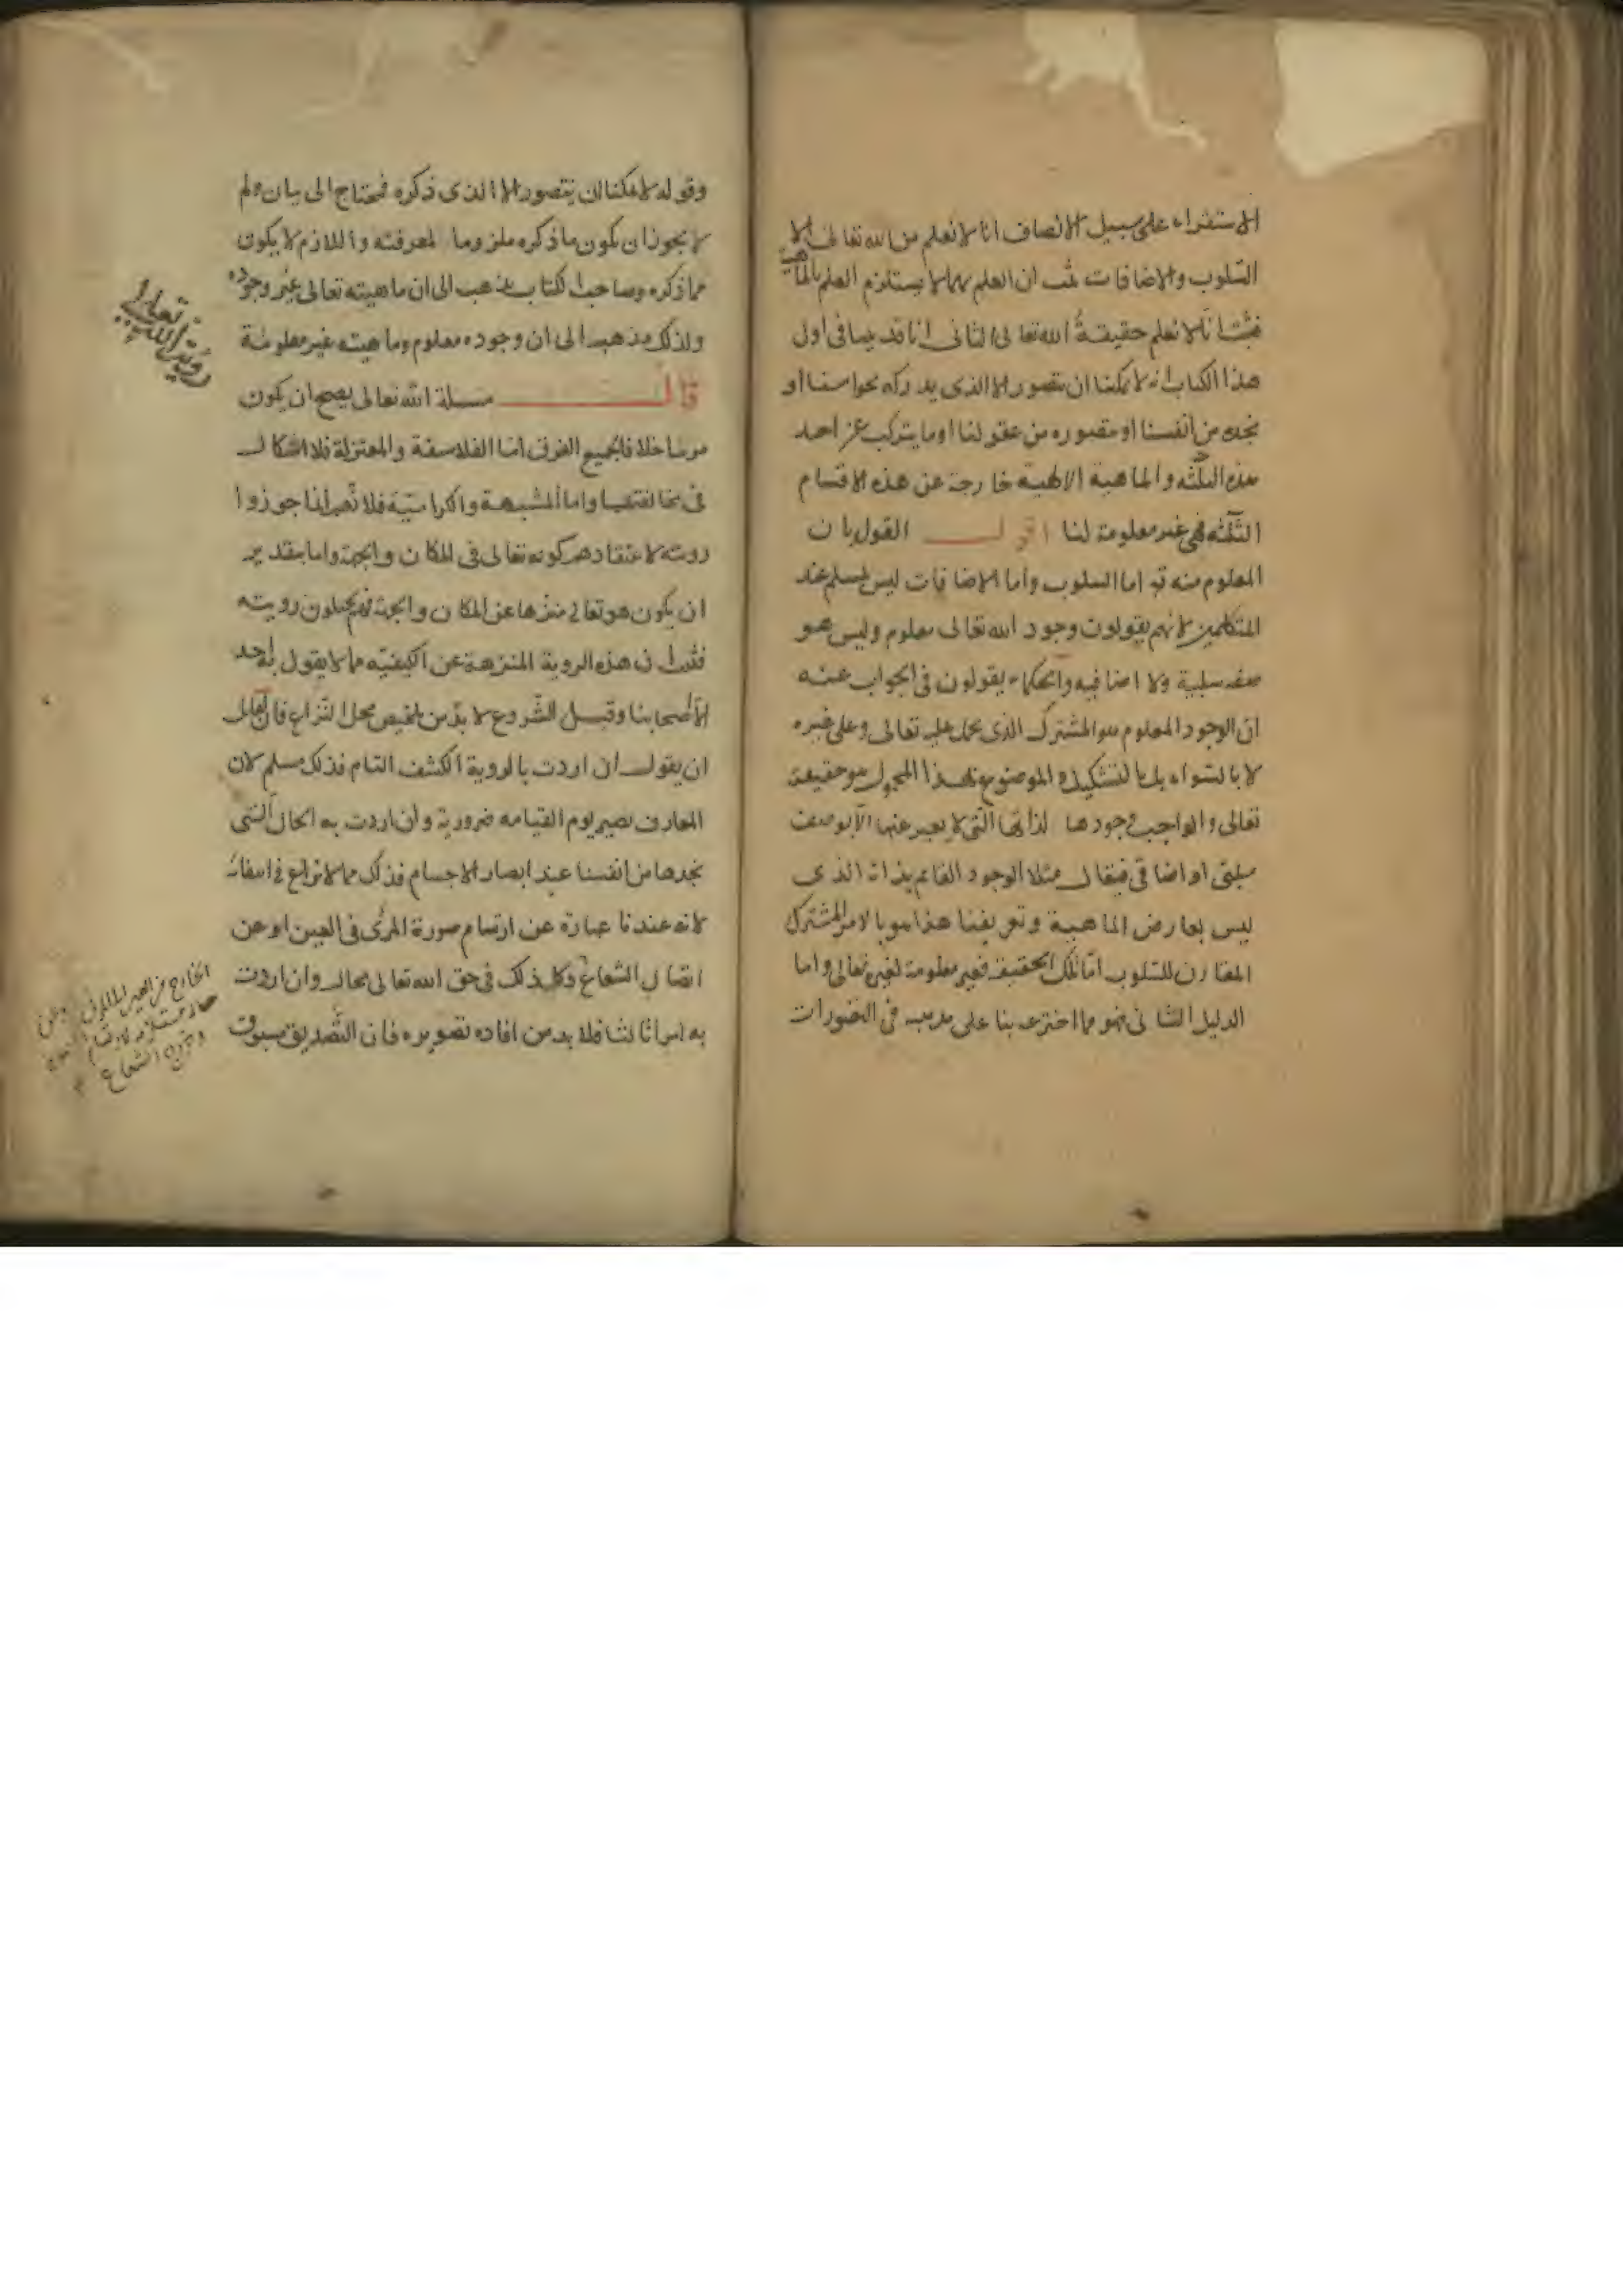 الاستقراء على سبيل الانصاف انا لا نعلم من الله تعالى الا
السلوب والاضافات ثبت ان العلم بهما لا يستلزم العلم بالماهية
فثبت انا لا نعلم حقيقة الله تعالى الثانى انا قد بينا فى اول
هذا الكتاب انه لا يمكننا ان نتصور الا الذى يدركه بحواسنا او
نجده من انفسنا او نتصوره من عقولنا او ما يتركب عن احد
هذه الثلثه والماهية الالهية خارجة عن هذه الاقسام
الثلثه فهى غير معلومة لنا اقول القول بان
المعلوم منه تع اما السلوب واما الاضافات ليس بمسلم عند
المتكلمين لانهم يقولون وجود الله تعالى معلوم وليس هو
صفه سلبية ولا اضافيه والحكماء يقولون فى الجواب عنه
ان الوجود المعلوم هو المشترك الذى يحمل عليه تعالى وعلى غيره
لا بالسواء بل بالتشكيك والموضوع لهذا المحمول هو حقيقته
تعالى والواجب وجودها لذاتها التى لا يعبر عنها الا بوصف
سلبى او اضافى فيقال مثلا الوجود القائم بذاته الذى
ليس بعارض الماهية وتعريفنا هذا هو بالامر المشترك
المقارن للسلوب اما تلك الحقيقة فغير معلومة لغيره تعالى واما
الدليل الثانى فهو مما اخترعه بنا على مذهبه فى التصورات
وقوله لا يمكننا ان نتصور الا الذى ذكره فمحتاج الى بيان ولم
لا يجوز ان يكون ما ذكره ملزوما لمعرفته واللازم لا يكون
مما ذكره وصاحب الكتاب يذهب الى ان ماهيته تعالى غير وجوده
ولذلك يذهب الى ان وجوده معلوم وماهيته غير معلومة
قال مسلة الله تعالى يصح ان يكون
مرئيا خلافا لجميع الفرق اما الفلاسفة والمعتزلة فلا اشكال
فى مخالفتهما واما المشبهة والكرامية فلانهم انما جوزوا
رويته لاعتقادهم كونه تعالى فى المكان والجهة واما بتقدير
ان يكون هو تعالى منزها عن المكان والجهة فهم يحيلون رويته
فثبت ان هذه الروية المنزهة عن الكيفيه مما لا يقول به احد
الا اصحابنا وقبل الشروع لا بد من تلخيص محل النزاع فان لقائل
ان يقول ان اردت بالروية الكشف التام فذلك مسلم لان
المعارف تصير يوم القيامه ضرورية وان اردت به الحال التى
نجدها من انفسنا عند ابصار الاجسام فذلك مما لا نزاع فى انتفائه
لانه عندنا عبارة عن ارتسام صورة المرئى فى العين او عن
اتصال الشعاع وكل ذلك فى حق الله تعالى محال وان اردت
به امرا ثالثا فلا بد من افاده تصويره فان التصديق مسبوق
رؤية الله تعالى
الخارج من العين الى المرئى او عن
حالة مستلزمة
وخروج الشعاع